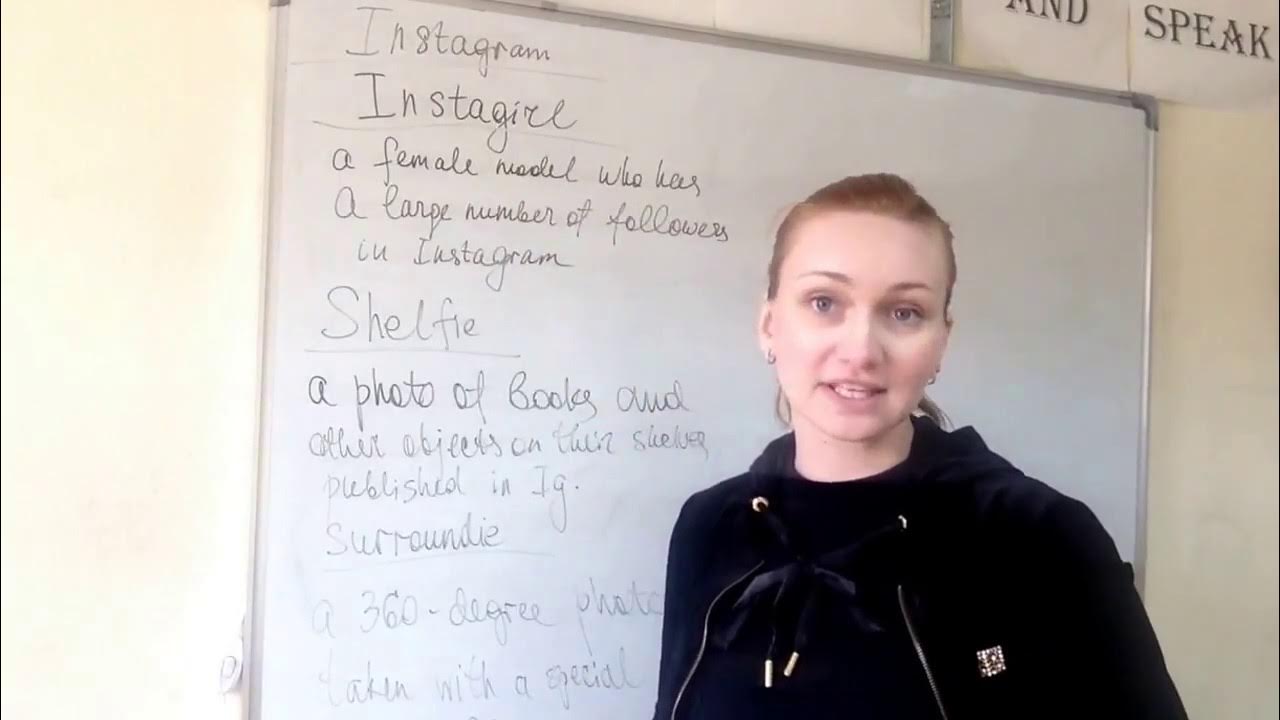 AND
SPEAK
Instagram
Instagirl
a female model who has
a large number of followers
in Instagram
Shelfie
a photo of books and
other objects on their shelves
published in Ig.
Surroundie
a 360-degree photo
taken with a special